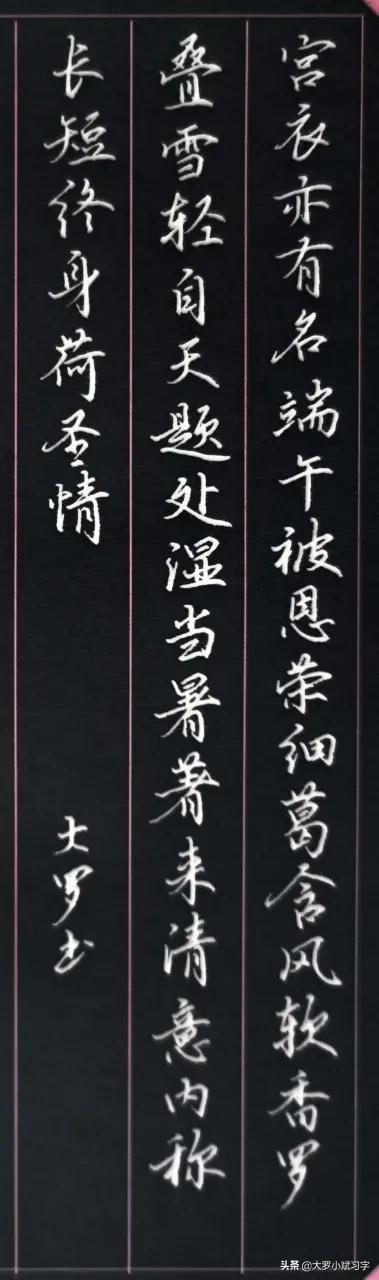 宫衣亦有名端午被恩荣细葛含风软香罗
叠雪轻自天题处湿当暑著来清意内称
长短终身荷圣情
大罗书
头条@大罗小斌习字